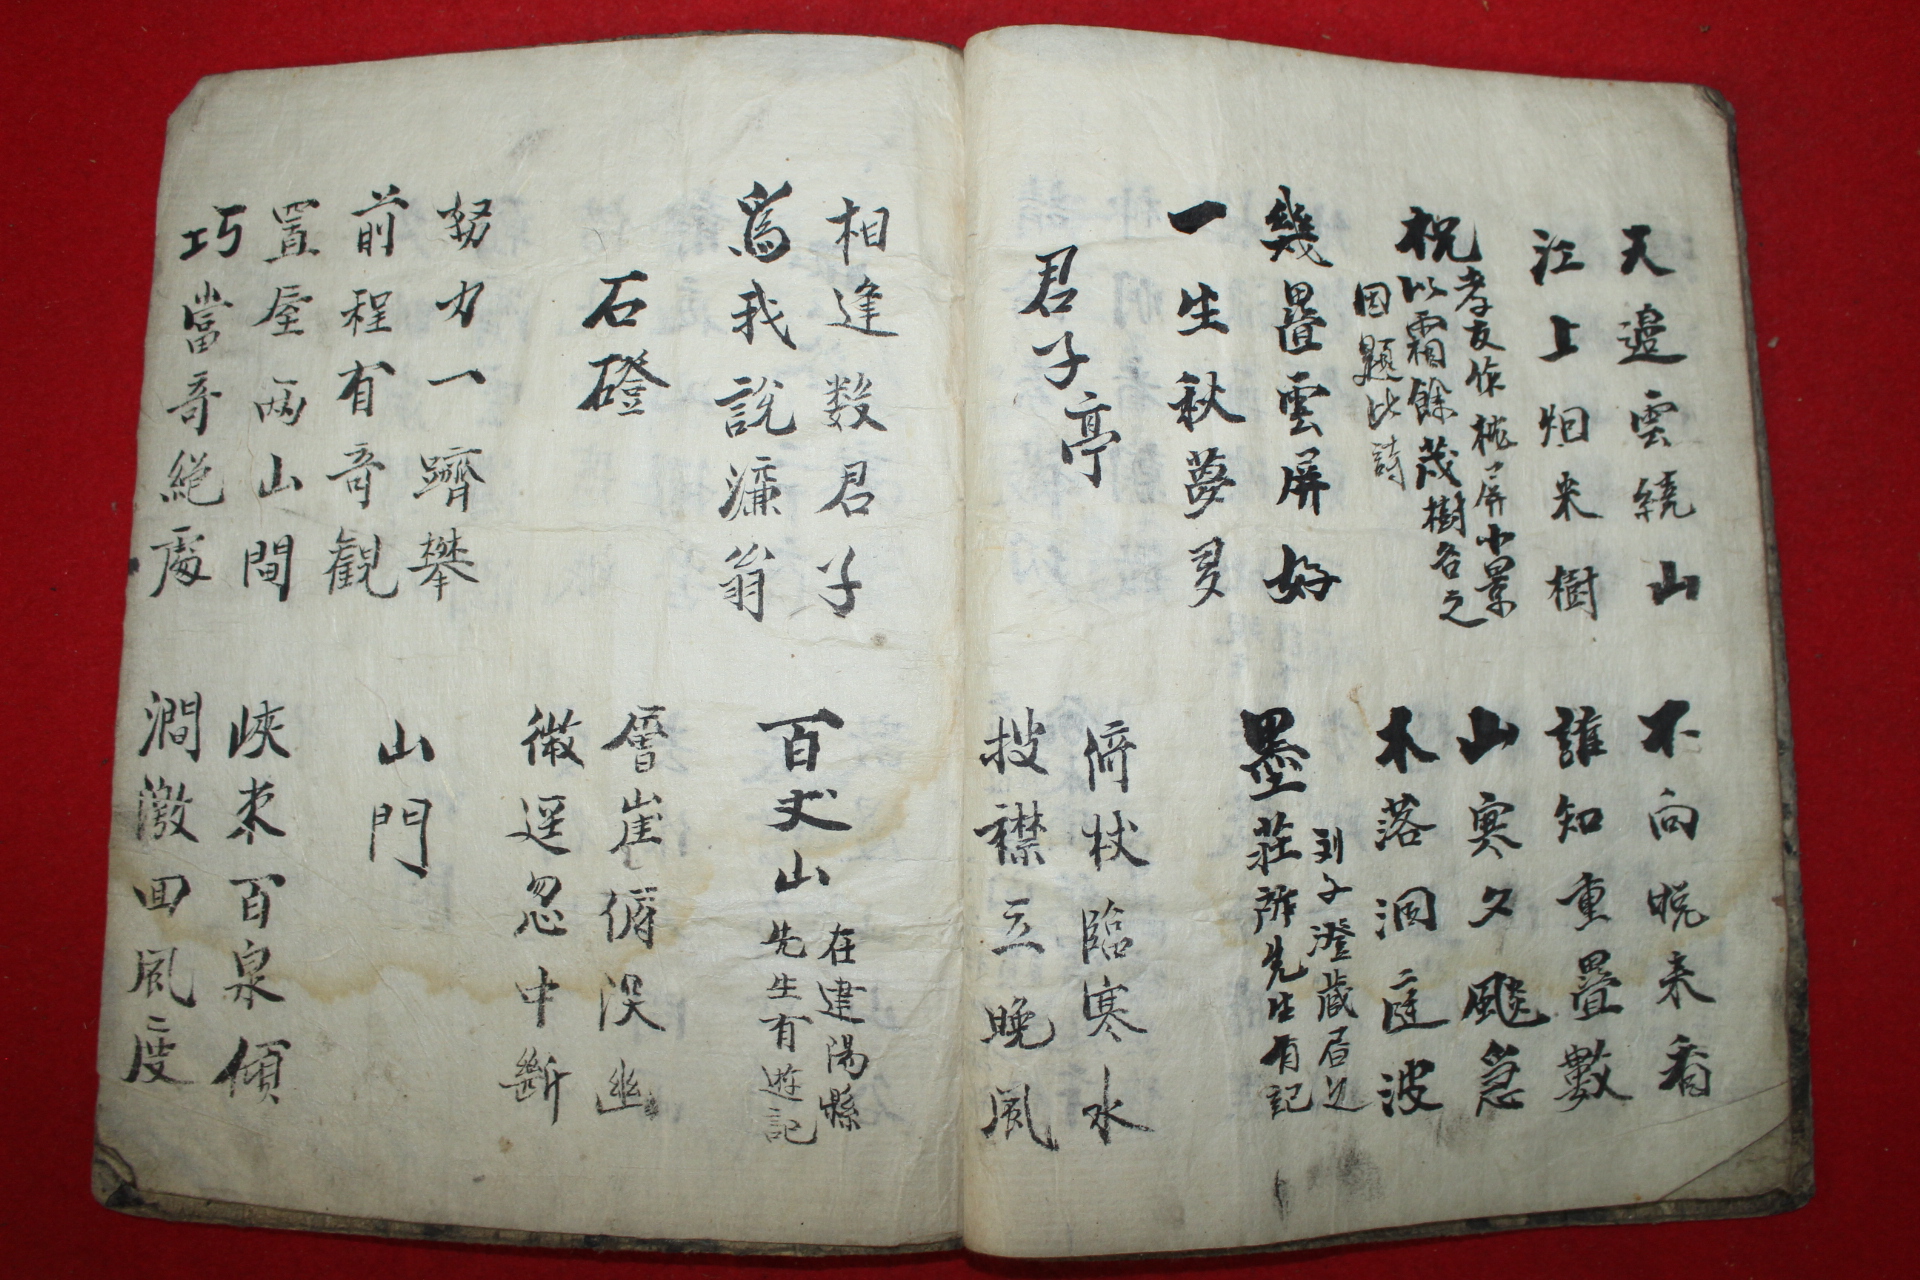 天邊雲繞山
江上烟来樹
不向晩来看
誰知重疊數
祝孝友作枕屏小景
以霜餘茂樹名之
因題此詩
山寒夕颷急
木落洞庭波
幾疊雲屏好
一生秋夢多
墨莊
刘子澄蔵書之
所先生有記
君子亭
倚杖臨寒水
披襟立晚風
相逢数君子
爲我說濂翁
百丈山
在建陽縣
先生有遊記
石磴
層崖俯深幽
微逕忽中斷
努力一躋攀
前程有奇觀
山門
置屋兩山間
巧當奇絕處
峽束百泉傾
澗激回風度